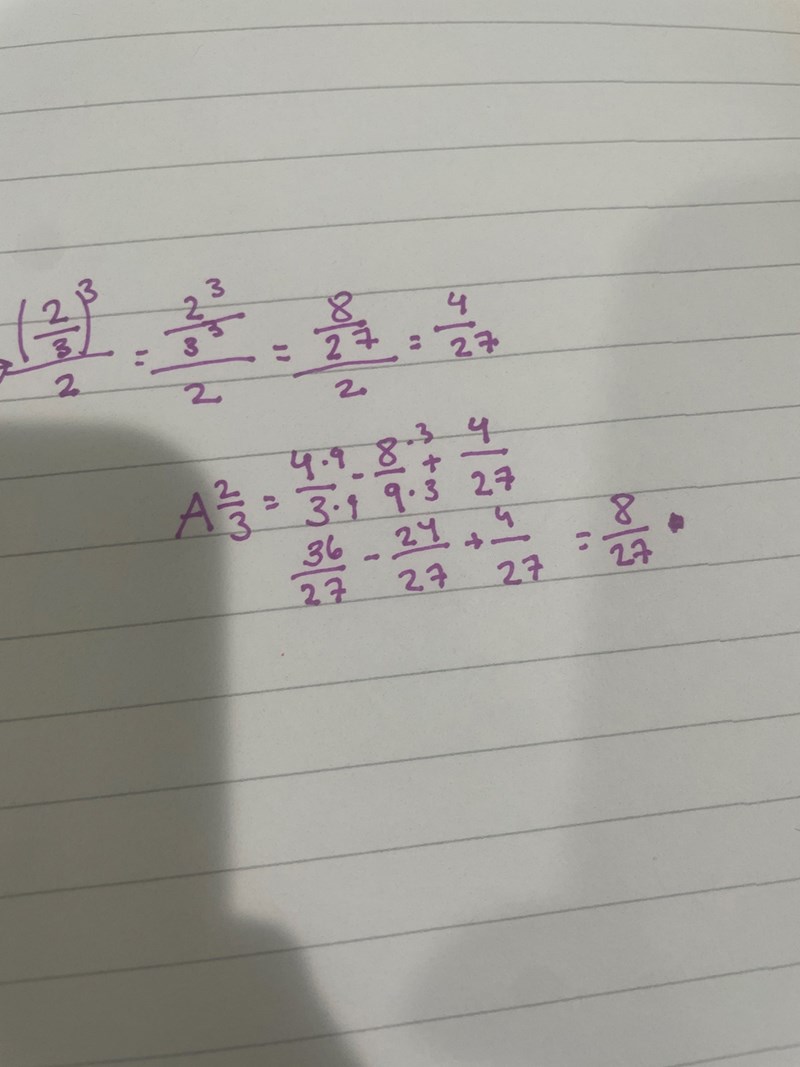 → (2/3)³/2 = (2³/3³)/2 = (8/27)/2 = 4/27
A 2/3 = 4·9/3·9 - 8·3/9·3 + 4/27
36/27 - 24/27 + 4/27 = 8/27 .